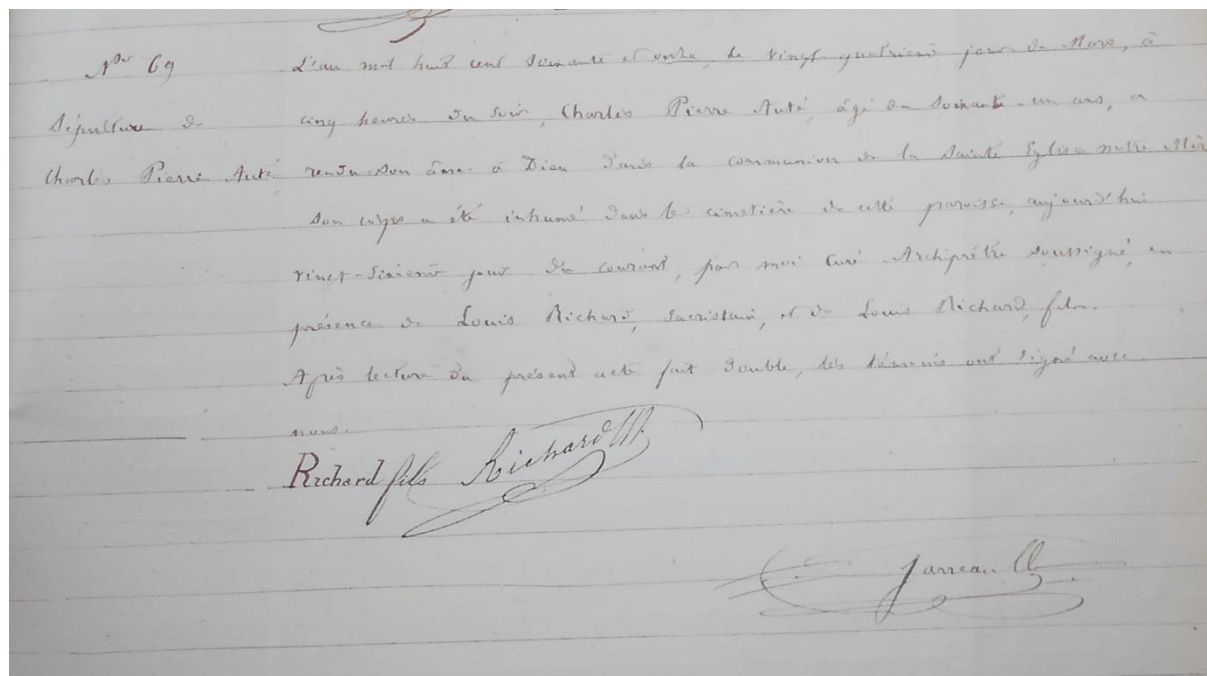 No 69
Sépulture de
Charles Pierre Auté
L'an mil huit cent soixante et onze, le vingt quatrième jour de Mars, à
cinq heures du soir, Charles Pierre Auté, âgé de soixante-un ans, a
rendu son âme à Dieu dans la communion de la Sainte Eglise notre Mère
Son corps a été inhumé dans le cimetière de cette paroisse, aujourd'hui
vingt-sixième jour du courant, par moi Curé Archiprêtre soussigné, en
présence de Louis Richard, sacristain, et de Louis Richard, fils.
Après lecture du présent acte fait double, les témoins ont signé avec
nous.
Richard fils Richard
Jarreau